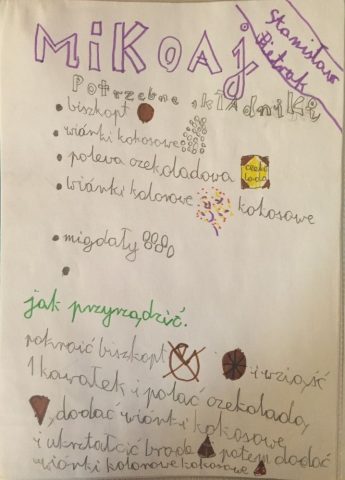 MiKOAj
Stanisław
Pietrak
Potrzebne składniki
• biszkopt
• wiórki kokosowe
• polewa czekoladowa
czeko
lada
• wiórki kolorowe kokosowe
• migdały
•
jak przyrządzić.
pokroić biszkopt i wziąść
1 kawałek i polać czekoladą,
, dodać wiórki kokosowe,
i ukształcić broda potem dodać
wiórki kolorowe kokosowe